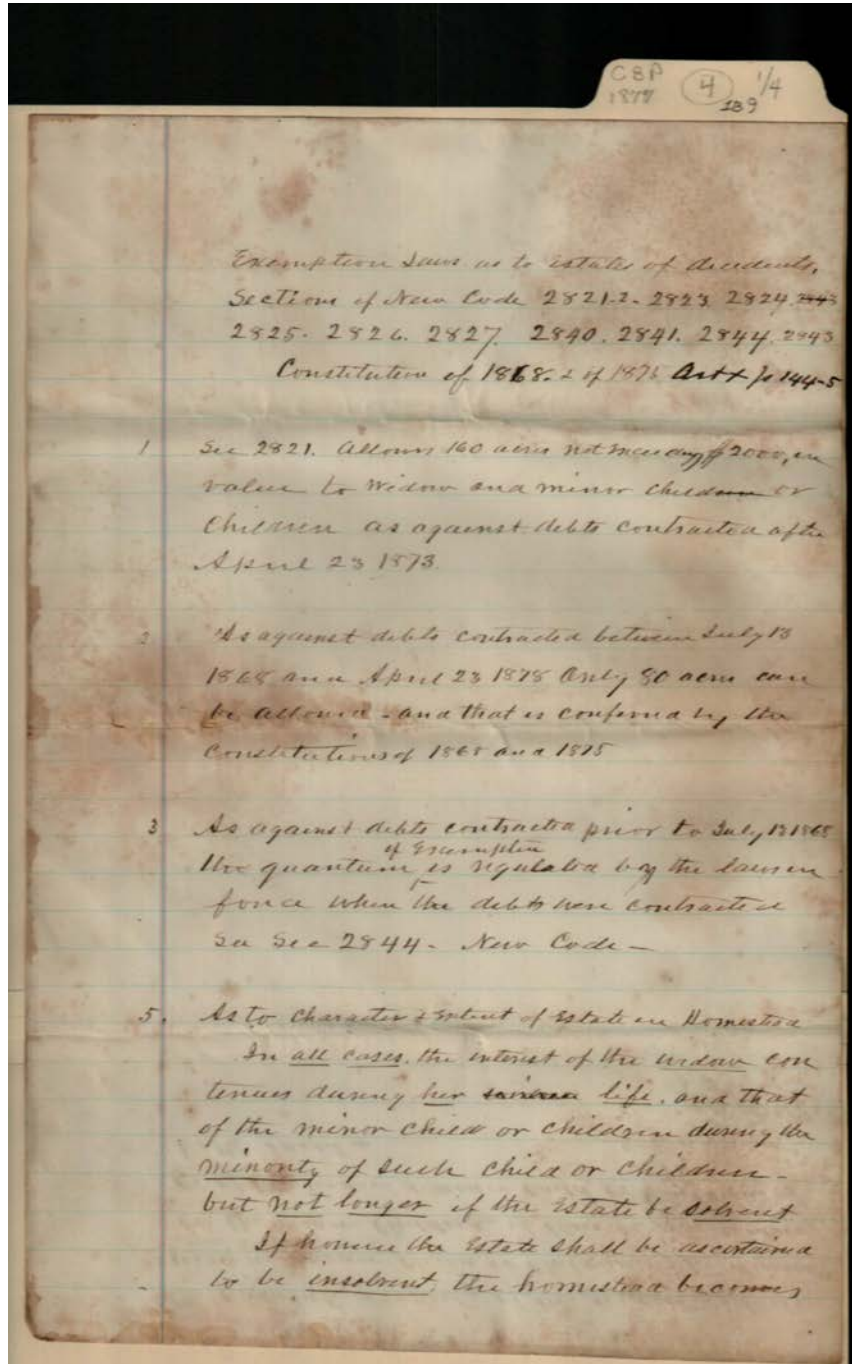 CSP 4 1/4
189
Exemption Laws as to estates of decedents,
Sections of New Code 2821-2. 2823. 2824. 2843
2825. 2826. 2827. 2840. 2841. 2844. 2943
Constitution of 1868. & of 1875 Art X p 144-5
1 Sec 2821. Allows 160 acres not exceeding $2000, in
value to widow and minor children or
children as against debts contracted after
April 23 1873.
2 As against debts contracted between July 13
1868 and April 23 1873 Only 80 acres can
be allowed - and that is conferred by the
Constitutions of 1868 and 1875
3 As against debts contracted prior to July 13 1868
of Exemption
the quantum is regulated by the laws in
force when the debts were contracted
See Sec 2844 - New Code -
5. As to character & extent of Estate in Homestead
In all cases, the interest of the widow con
tinues during her life. and that
of the minor child or children during the
minority of such child or children -
but not longer if the Estate be solvent
If however the Estate shall be ascertained
to be insolvent, the homestead becomes